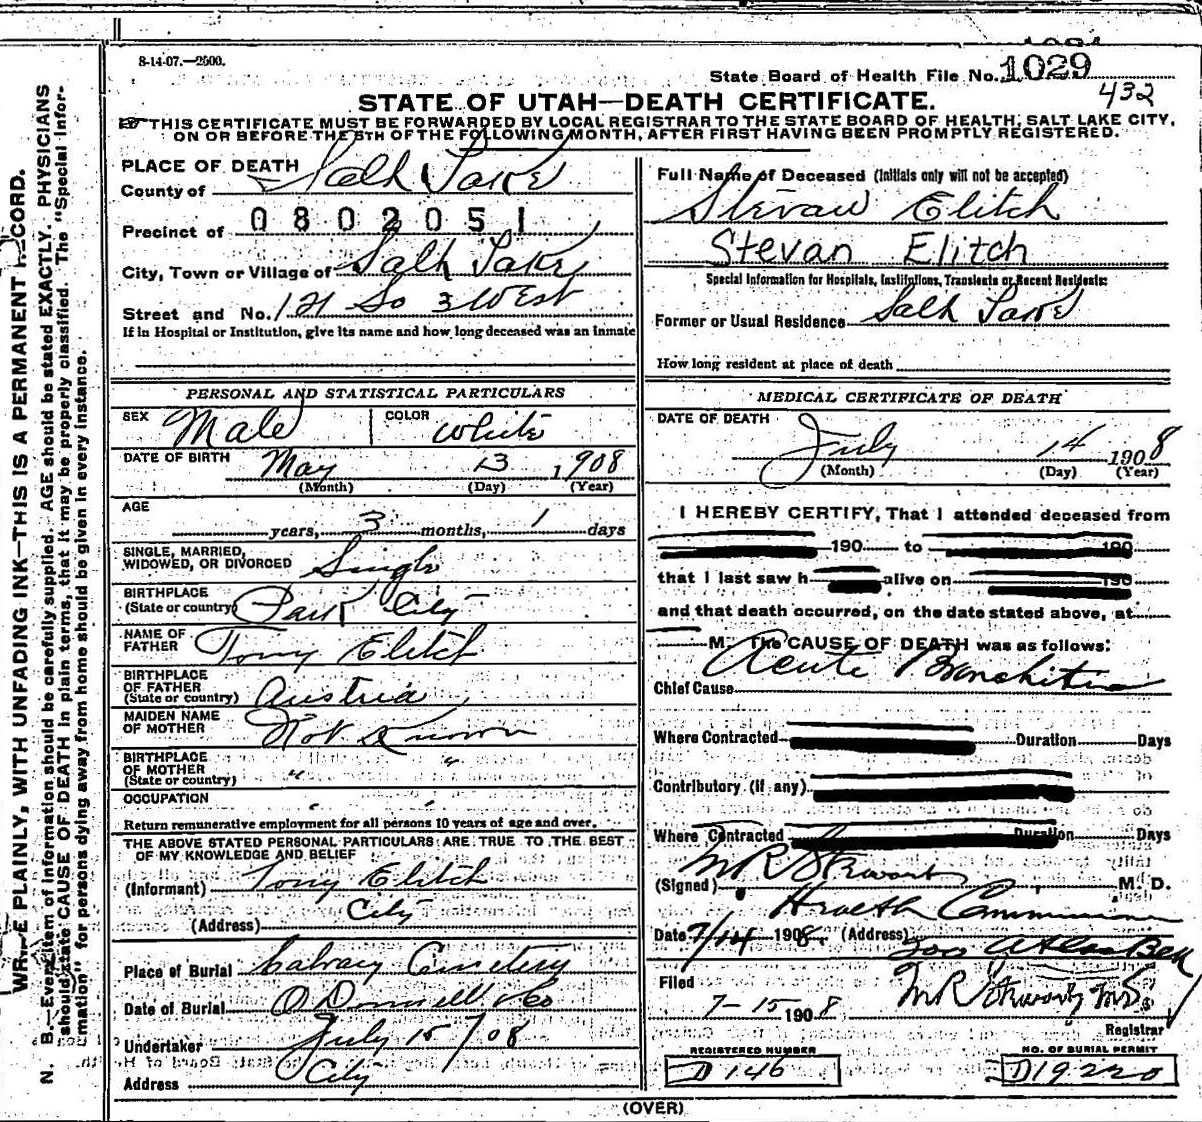 8-14-07.—2500.
State Board of Health File No. 1029
432
STATE OF UTAH—DEATH CERTIFICATE.
THIS CERTIFICATE MUST BE FORWARDED BY LOCAL REGISTRAR TO THE STATE BOARD OF HEALTH, SALT LAKE CITY,
ON OR BEFORE THE 5TH OF THE FOLLOWING MONTH, AFTER FIRST HAVING BEEN PROMPTLY REGISTERED.
WRITE PLAINLY, WITH UNFADING INK—THIS IS A PERMANENT RECORD.
N. B.—Every item of information should be carefully supplied. AGE should be stated EXACTLY. PHYSICIANS
should state CAUSE OF DEATH in plain terms, that it may be properly classified. The "Special Infor-
mation" for persons dying away from home should be given in every instance.
PLACE OF DEATH
County of Salt Lake
Precinct of 0802051
City, Town or Village of Salt Lake
Street and No. 121 So 3 West
If in Hospital or Institution, give its name and how long deceased was an inmate
PERSONAL AND STATISTICAL PARTICULARS
SEX Male COLOR White
DATE OF BIRTH May 13 1908
(Month) (Day) (Year)
AGE
years, 3 months, 1 days
SINGLE, MARRIED,
WIDOWED, OR DIVORCED Single
BIRTHPLACE
(State or country) Park City
NAME OF
FATHER Tony Elitch
BIRTHPLACE
OF FATHER
(State or country) Austria
MAIDEN NAME
OF MOTHER Not Known
BIRTHPLACE
OF MOTHER
(State or country) " "
OCCUPATION
Return remunerative employment for all persons 10 years of age and over.
THE ABOVE STATED PERSONAL PARTICULARS ARE TRUE TO THE BEST
OF MY KNOWLEDGE AND BELIEF
(Informant) Tony Elitch
(Address) City
Place of Burial Calvary Cemetery
Date of Burial O'Donnell & Co
Undertaker July 15/08
Address City
Full Name of Deceased (Initials only will not be accepted)
Stevan Elitch
Stevan Elitch
Special Information for Hospitals, Institutions, Transients or Recent Residents:
Former or Usual Residence Salt Lake
How long resident at place of death
MEDICAL CERTIFICATE OF DEATH
DATE OF DEATH
July 14 1908
(Month) (Day) (Year)
I HEREBY CERTIFY, That I attended deceased from
190 to 190
that I last saw h alive on 190
and that death occurred, on the date stated above, at
M. The CAUSE OF DEATH was as follows:
Chief Cause Acute Bronchitis
Where Contracted Duration Days
Contributory (if any)
Where Contracted Duration Days
(Signed) M R Stewart M. D.
Health Commissioner
Date 7/14 1908. (Address)
Filed
7-15 1908 M R Stewart MD
Registrar
REGISTERED NUMBER
D 146
NO. OF BURIAL PERMIT
D19220
(OVER)